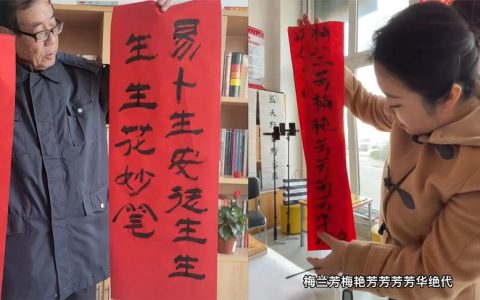 易卜生安徒生生
生生花妙笔
梅兰芳梅艳芳芳芳芳华
梅兰芳梅艳芳芳芳芳华绝代